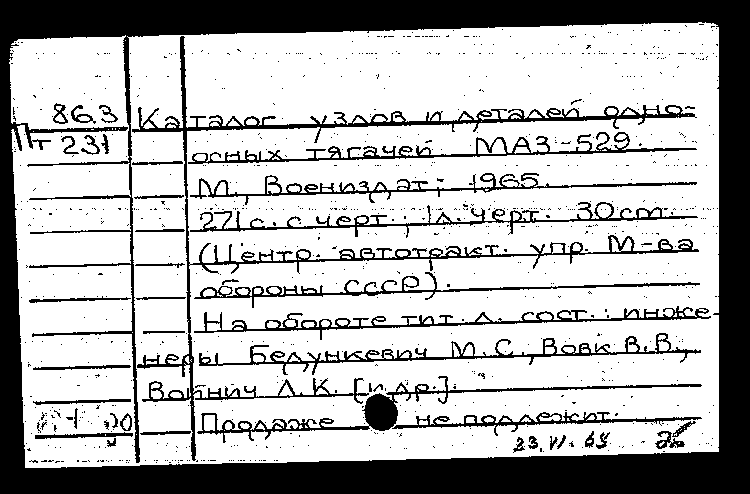 86.3 Каталог узлов и деталей одно-
Пт 231 осных тягачей МАЗ-529.
М., Воениздат, 1965.
271 с. с черт., 1 л. черт. 30 cm.
(Центр. автотракт. упр. М-ва
обороны СССР).
На обороте тит. л. сост.: инже-
неры Бедункевич М.С., Вовк В.В.,
Войнич Л.К. [и др.].
Продаже не подлежит.
23.VI.65